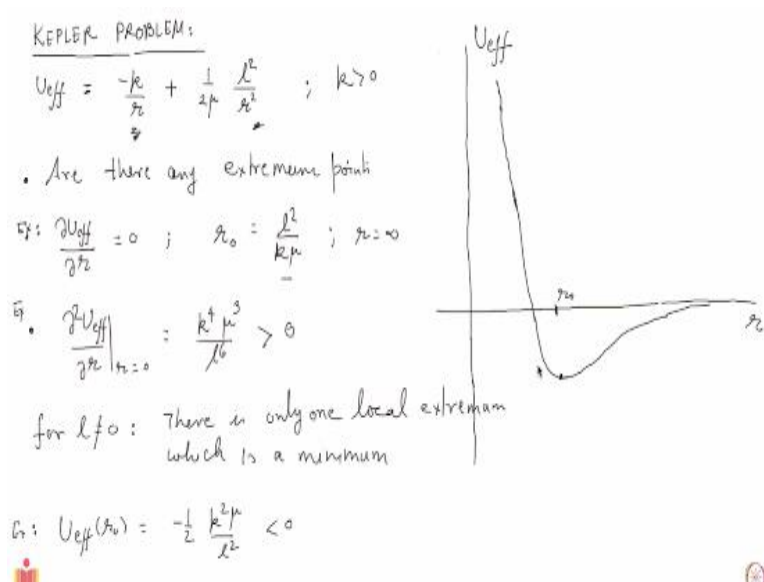 KEPLER PROBLEM:
Ueff = -k/r + 1/2μ l²/r² ; k>0
• Are there any extremum points
Ex: ∂Ueff/∂r = 0 ; r₀ = l²/kμ ; r=∞
Ex. ∂²Ueff/∂r |r=0 = k⁴μ³/l⁶ > 0
for l≠0 : There is only one local extremum
which is a minimum
Ueff(r₀) = -1/2 k²μ/l² < 0
Ueff
r₀
r